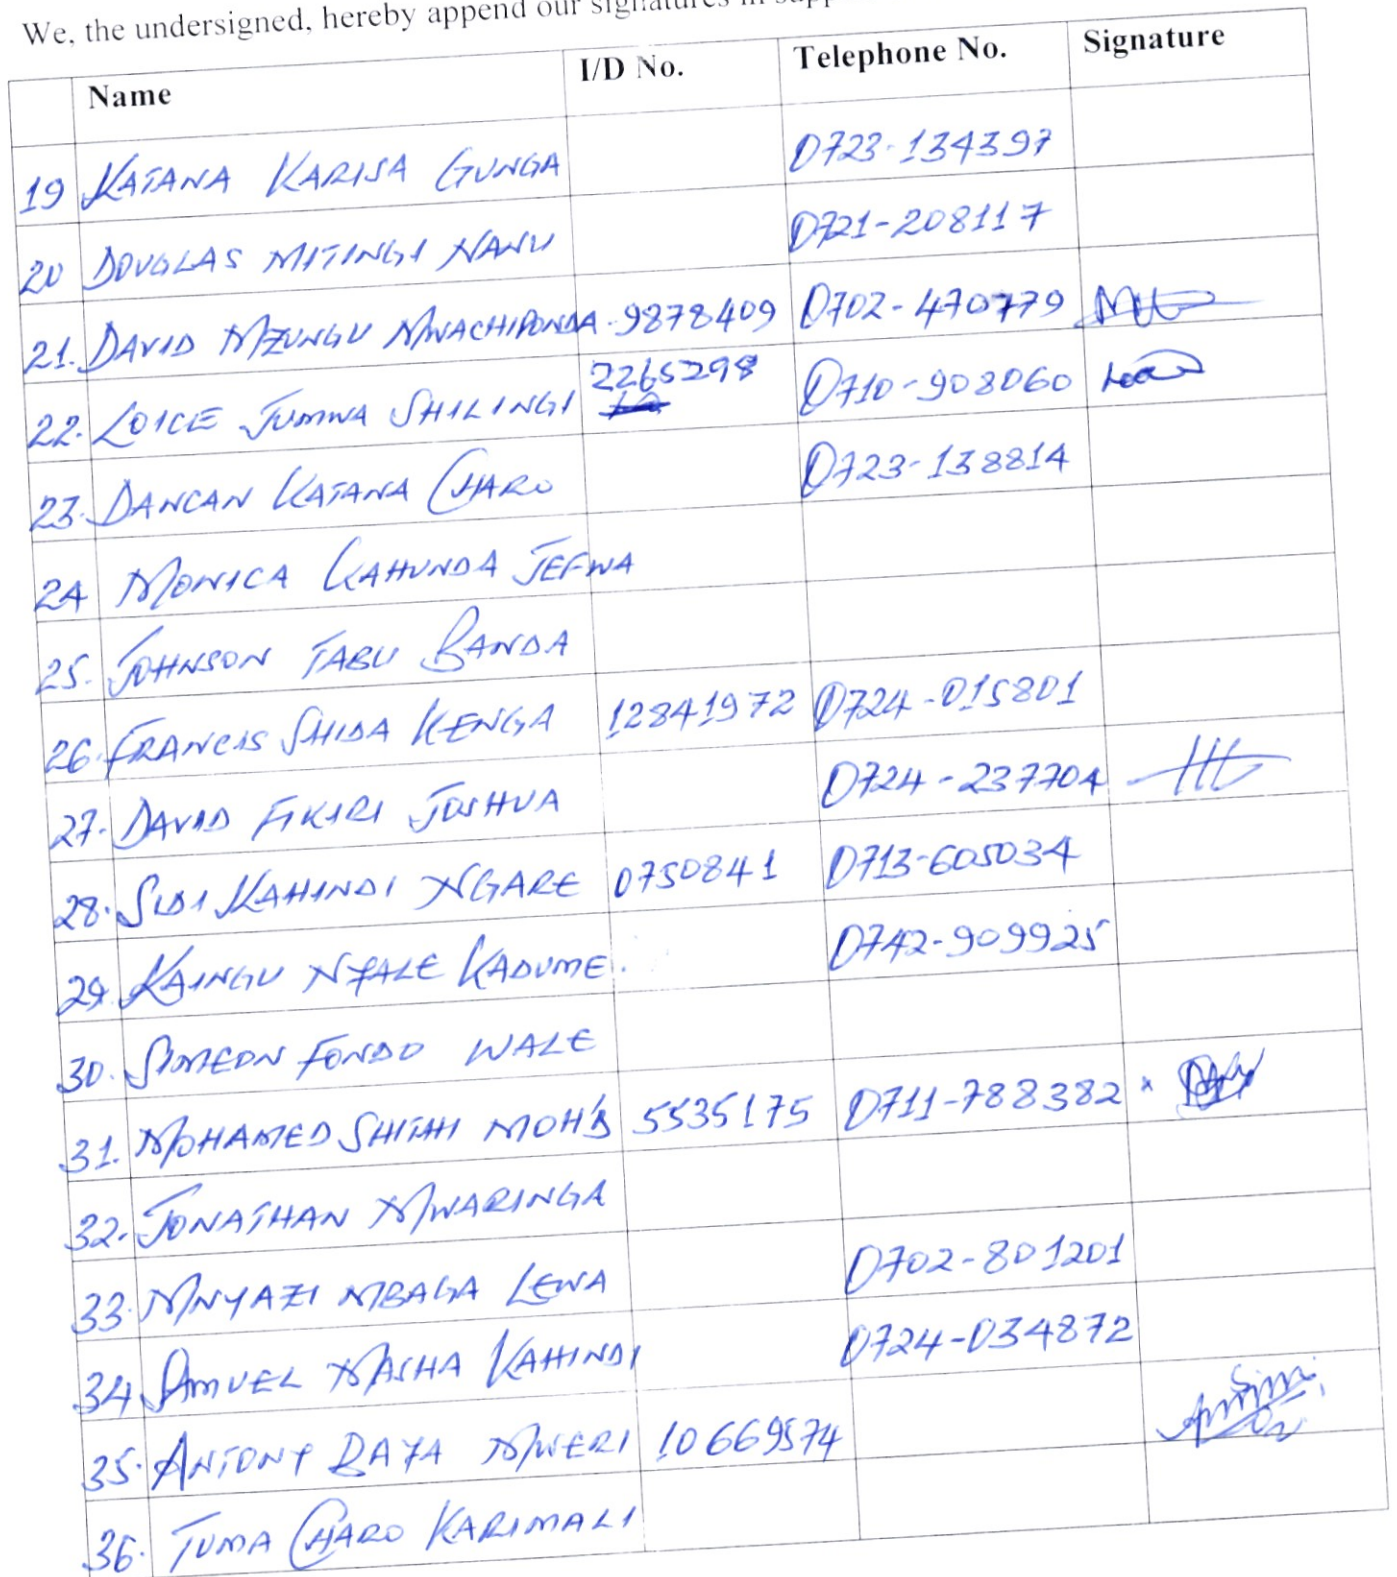 We, the undersigned, hereby append our signatures in
Name I/D No. Telephone No. Signature
19 KATANA KARISA GUNGA 0723-134397
20 DOUGLAS MITINGI NANU 0721-208117
21. DAVID MZUNGU MWACHIPONDA 9878409 0702-470779
22. LOICE JUMWA SHILINGI 2265298 0710-908060
23. DANCAN KATANA CHARO 0723-138814
24 MONICA KAHUNDA JEFWA
25. JOHNSON TABU BANDA
26. FRANCIS SHIDA KENGA 12841972 0724-015801
27. DAVID FIKIRI JOSHUA 0724-237704
28. SIDI KAHINDI NGARE 0750841 0713-605034
29. KAINGU NYALE KADUME. 0742-909925
30. SIMEON FONDO WALE
31. MOHAMED SHITAHI MOH'D 5535175 0711-788382
32. JONATHAN MWARINGA
33. MNYAZI MBAGA LEWA 0702-801201
34 SAMUEL MASHA KAHINDI 0724-034872
35. ANTONY BAYA MWERI 10669574
36. TUMA CHARO KARIMALI